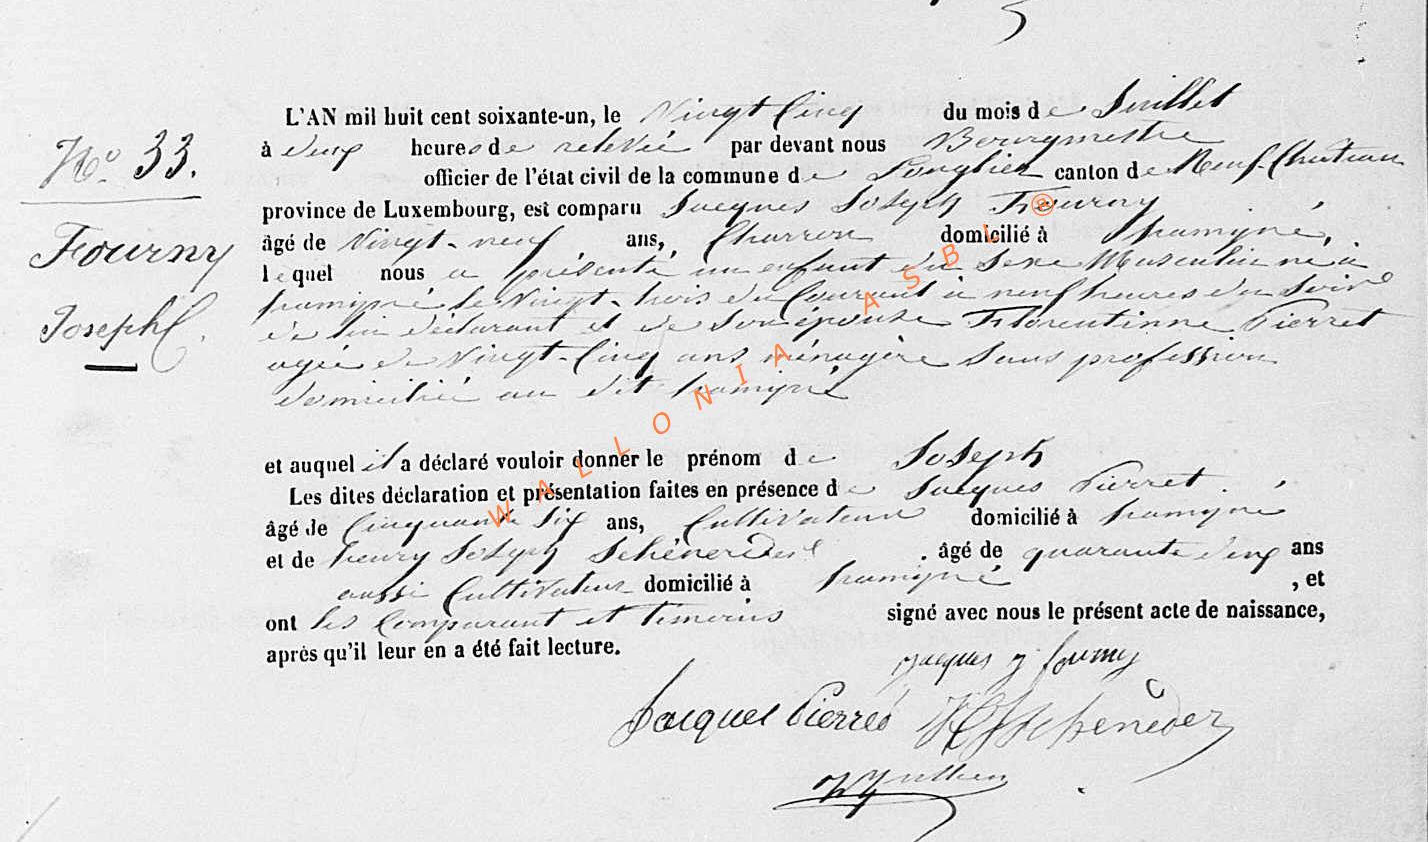 L'AN mil huit cent soixante-un, le Vingt Cinq du mois de Juillet
No. 33.
à deux heures de relevée par devant nous Bourgmestre
officier de l'état civil de la commune de Longlier canton de Neuf-Chateau
province de Luxembourg, est comparu Jacques Joseph Fourny
Fourny
âgé de Vingt-neuf ans, Charron domicilié à hamipré,
lequel nous a présenté un enfant du Sexe Masculin né à
Joseph
hamipré le Vingt-trois du Courant à neuf heures du Soir
de lui déclarant et de Son épouse Florentinne Pierret
agée de Vingt-Cinq ans ménagère Sans profession
domicilié au dit hamipré
et auquel il a déclaré vouloir donner le prénom de Joseph
Les dites déclaration et présentation faites en présence de Jacques Pierret
âgé de Cinquante Six ans, Cultivateur domicilié à hamipré
et de henry Joseph âgé de quarante deux ans
aussi Cultivateur domicilié à hamipré, et
ont les Comparant et témoins signé avec nous le présent acte de naissance,
après qu'il leur en a été fait lecture.
jacques j fourny
Jacques Pierret HJScheneder
WALLONIA ASBL ®